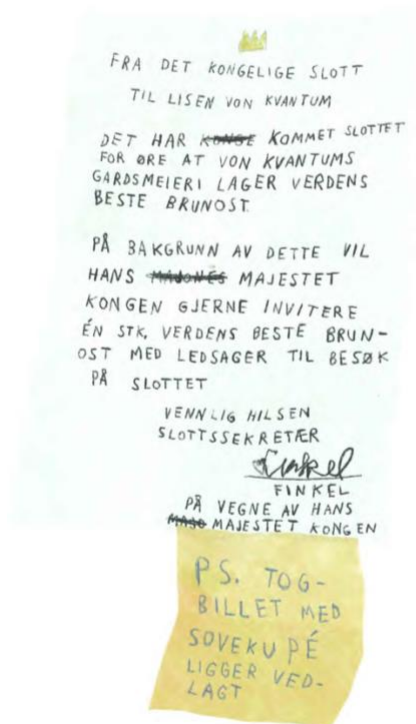 FRA DET KONGELIGE SLOTT
TIL LISEN VON KVANTUM
DET HAR KONGE KOMMET SLOTTET
FOR ØRE AT VON KVANTUMS
GARDSMEIERI LAGER VERDENS
BESTE BRUNOST
PÅ BAKGRUNN AV DETTE VIL
HANS MAJONES MAJESTET
KONGEN GJERNE INVITERE
ÉN STK. VERDENS BESTE BRUN-
OST MED LEDSAGER TIL BESØK
PÅ SLOTTET
VENNLIG HILSEN
SLOTTSSEKRETÆR
Finkel
FINKEL
PÅ VEGNE AV HANS
MAJO MAJESTET KONGEN
PS. TOG-
BILLET MED
SOVEKUPÉ
LIGGER VED-
LAGT